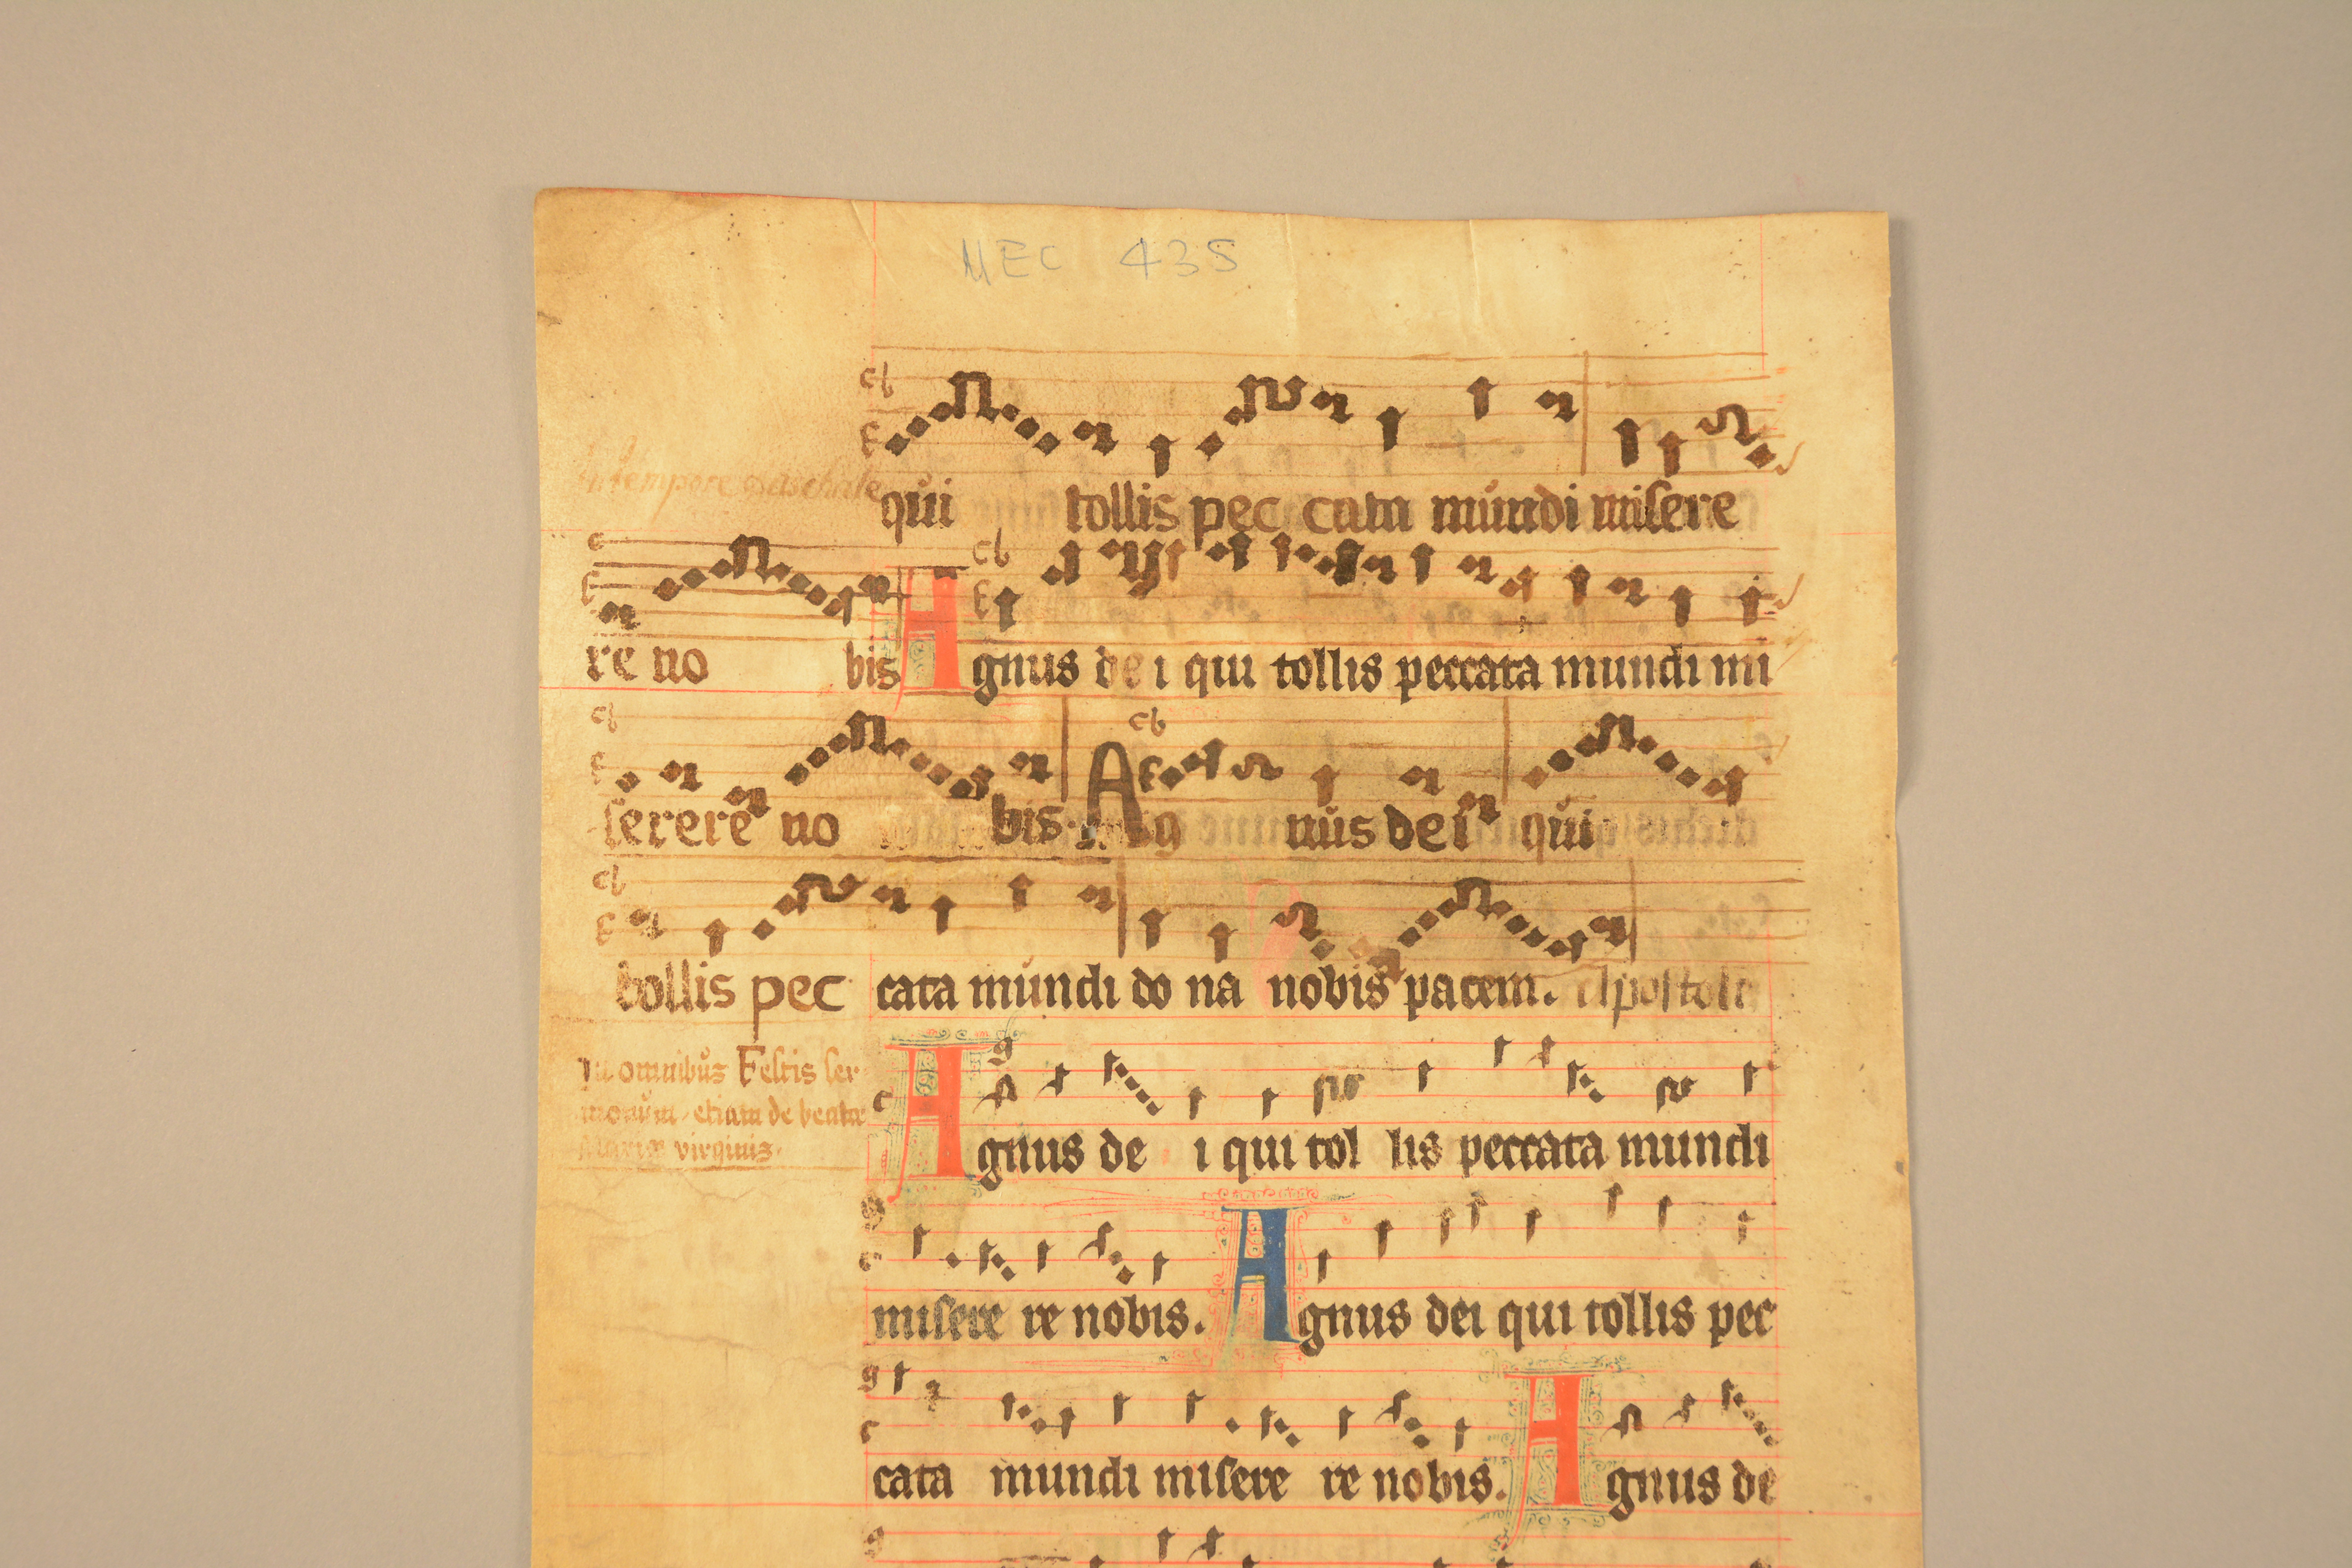 MEC 435
In tempore paschale
qui tollis pec cata mundi misere
re no bis Agnus de i qui tollis peccata mundi mi
serere no bis. Ag nus dei qui
tollis pec cata mundi do na nobis pacem. Apostolic
In omnibus Festis ser
monum etiam de beatae
Mariae virginis.
Agnus de i qui tol lis peccata mundi
misere re nobis. Agnus dei qui tollis pec
cata mundi misere re nobis. Agnus de